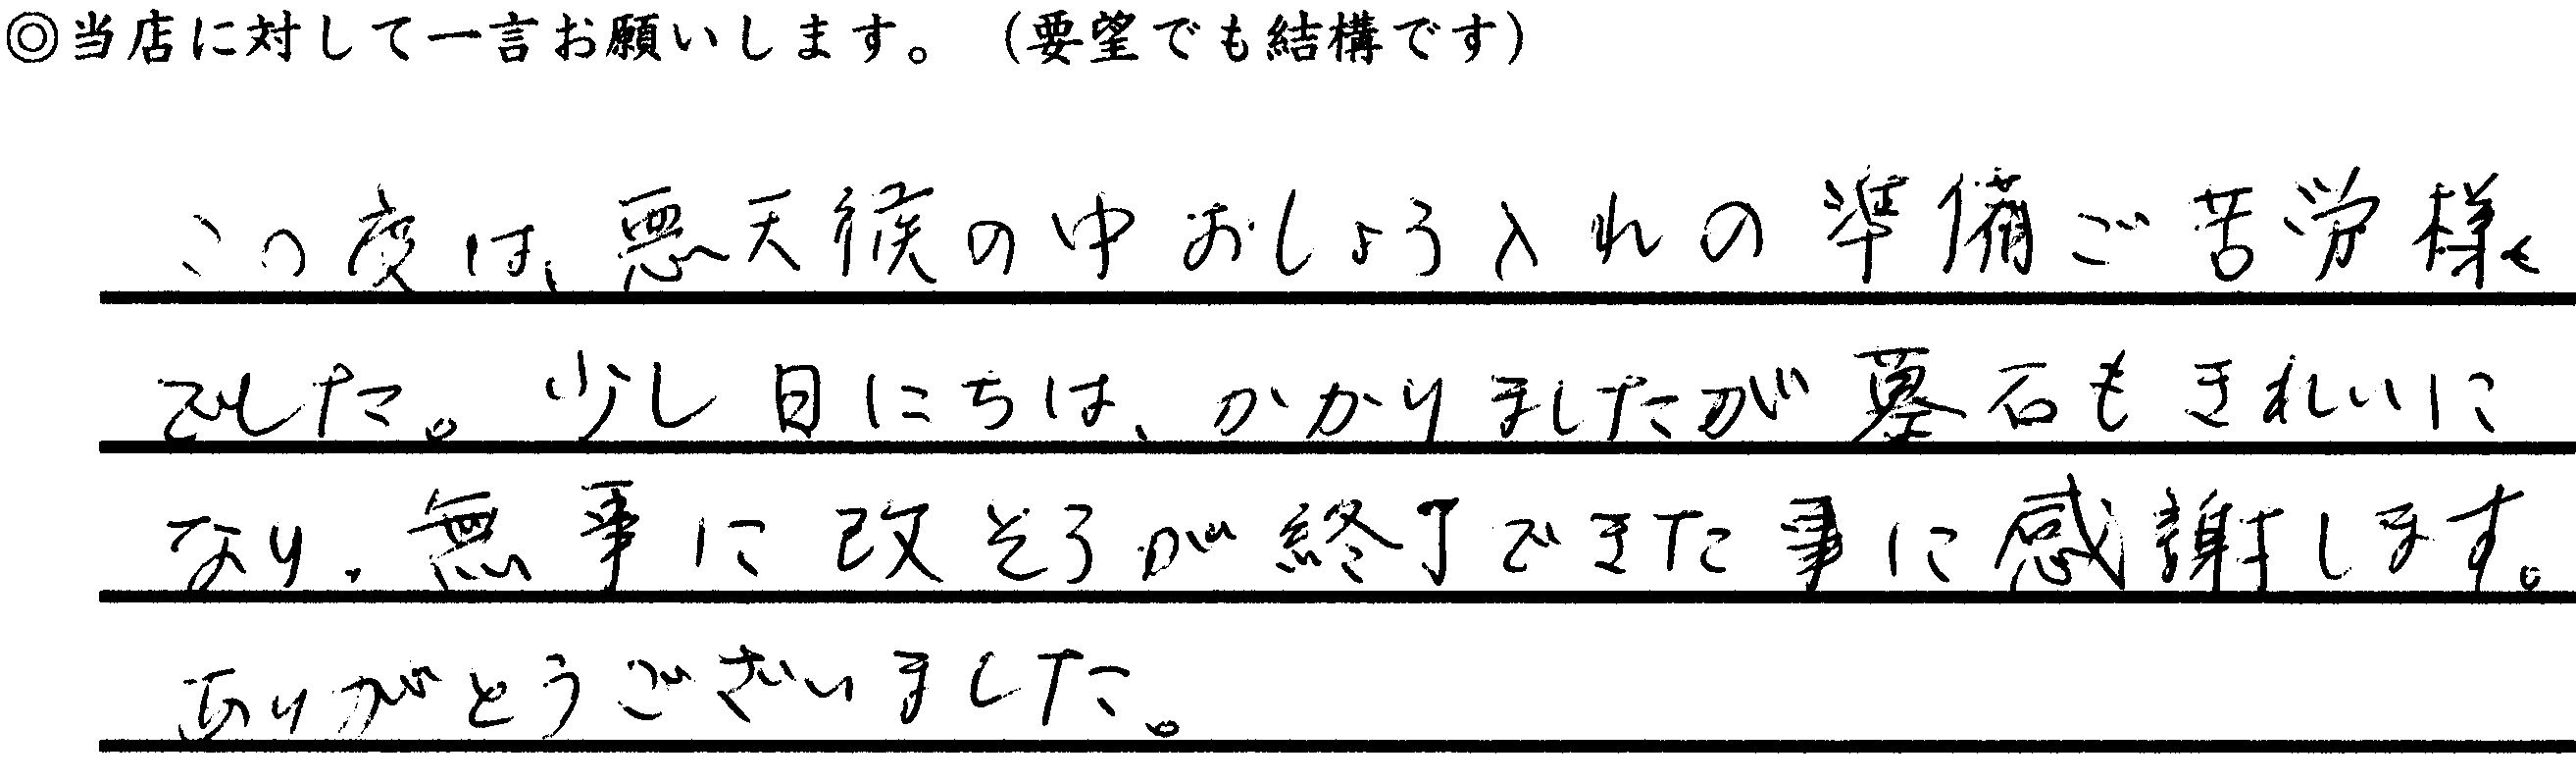 ◎当店に対して一言お願いします。（要望でも結構です）
この度は、悪天候の中おしょう入れの準備ご苦労様
でした。少し日にちは、かかりましたが墓石もきれいに
なり、無事に改そうが終了できた事に感謝します。
ありがとうございました。